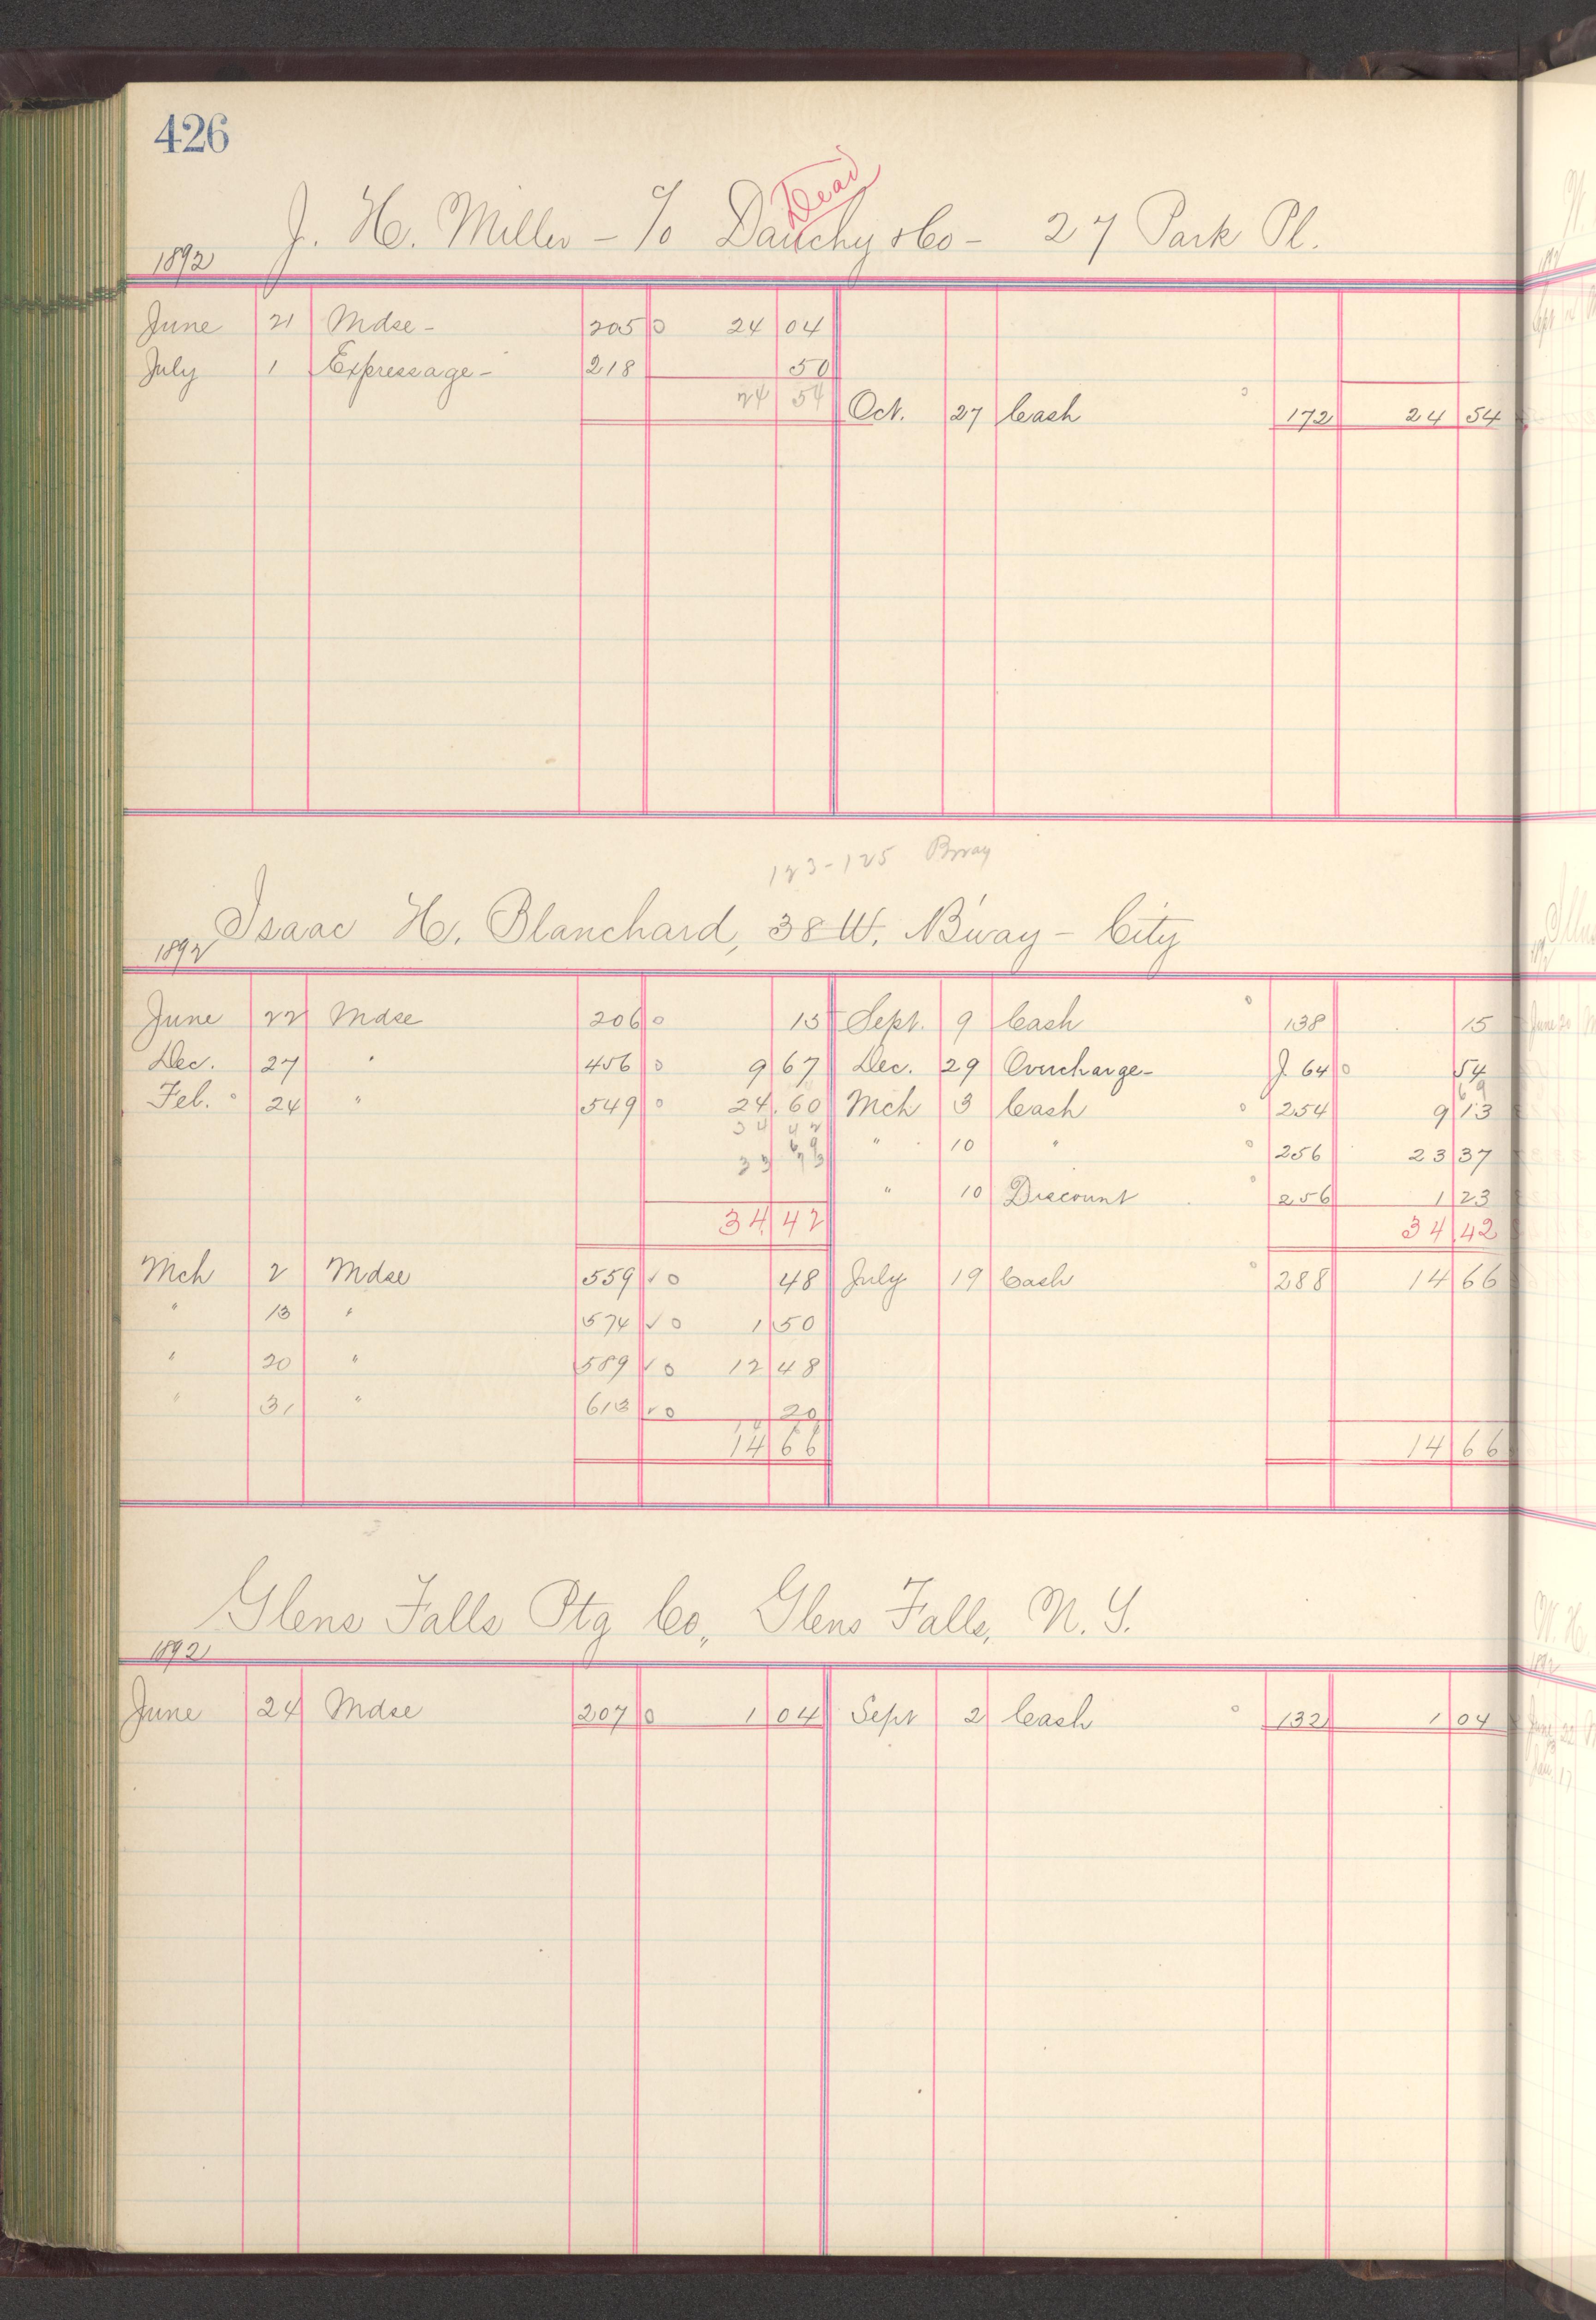 426
Dead
J. H. Miller - c/o Dauchy & Co - 27 Park Pl.
1892
June 21 Mdse - 205 0 24 04
July 1 Expressage - 218 50
24 54 Oct. 27 Cash 172 24 54
123-125 Bway
Isaac H. Blanchard, 38 W. B'way - City
1892
June 22 Mdse 206 0 15 Sept. 9 Cash 138 15
Dec. 27 " 456 0 9 67 Dec. 29 Overcharge - J. 64 0 54
Feb. 24 " 549 0 24.60 Mch 3 Cash 254 9 13
34 42 " 10 " 256 23 37
" 10 Discount 256 1 23
34 42 34 42
Mch 2 Mdse 559 ✓ 0 48 July 19 Cash 288 14 66
" 13 " 574 ✓ 0 1 50
" 20 " 589 ✓ 0 12 48
" 31 " 613 ✓ 0 20
14 66 14 66
Glens Falls Ptg Co., Glens Falls, N. Y.
1892
June 24 Mdse 207 0 1 04 Sept 2 Cash 132 1 04